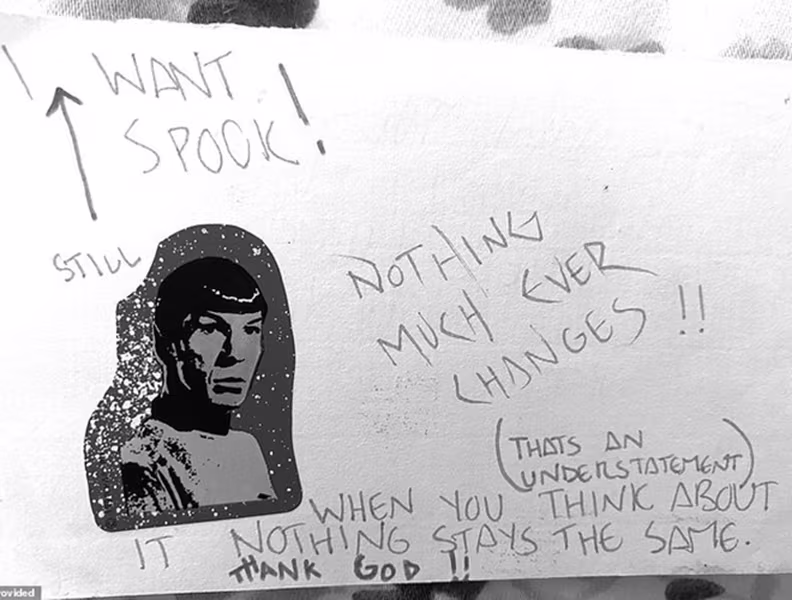 I WANT
SPOCK!
STILL
NOTHING
MUCH EVER
CHANGES !!
(THATS AN
UNDERSTATEMENT)
WHEN YOU THINK ABOUT
IT NOTHING STAYS THE SAME.
THANK GOD !!
ovided